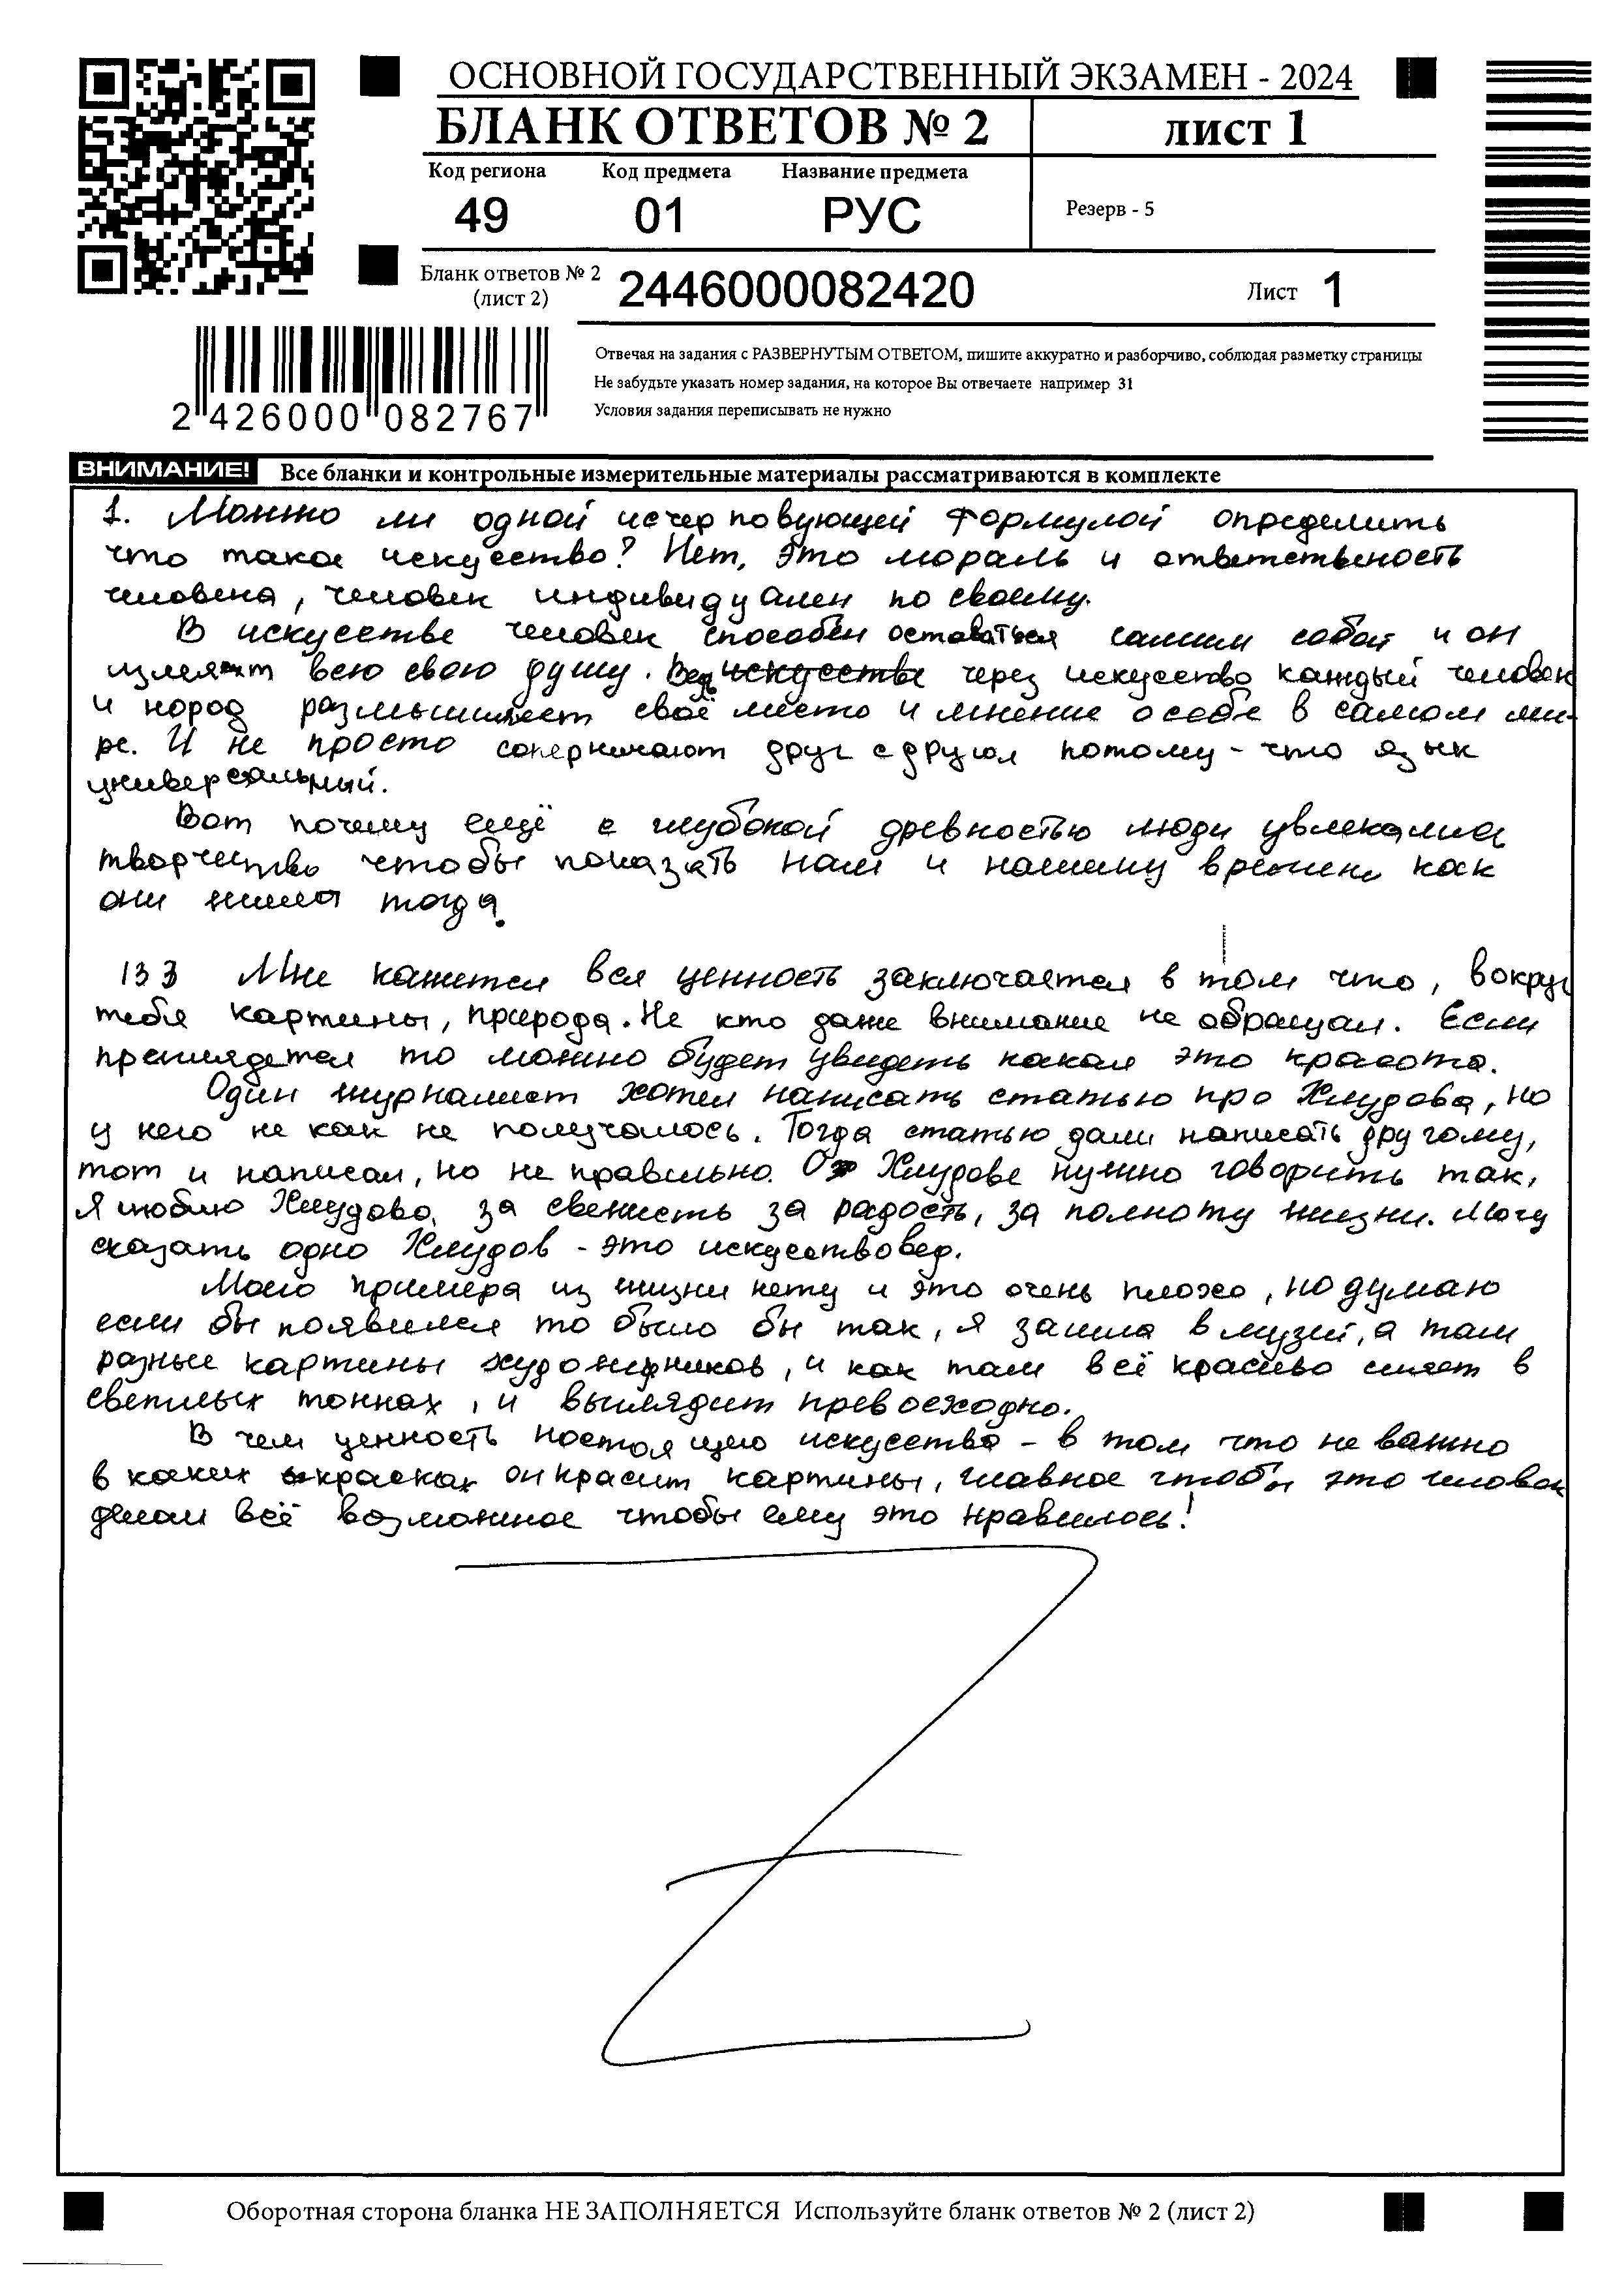 ОСНОВНОЙ ГОСУДАРСТВЕННЫЙ ЭКЗАМЕН - 2024
БЛАНК ОТВЕТОВ № 2
лист 1
Код региона Код предмета Название предмета
49 01 РУС
Резерв - 5
Бланк ответов № 2
(лист 2)
2446000082420
Лист 1
Отвечая на задания с РАЗВЕРНУТЫМ ОТВЕТОМ, пишите аккуратно и разборчиво, соблюдая разметку страницы
Не забудьте указать номер задания, на которое Вы отвечаете например 31
Условия задания переписывать не нужно
2 426000 082767
ВНИМАНИЕ! Все бланки и контрольные измерительные материалы рассматриваются в комплекте
1. Можно ли одной исчерповующей формулой определить
что такое искусство? Нет, это мораль и ответственость
человека, человек индивидуален по своему.
В искусстве человек способен оставаться самим собой и он
изменяет всю свою душу. Ведь искусстве через искусство каждый человек
и народ размышляет своё место и мнение о себе в самом ми-
ре. И не просто соперничают друг с другом потому-что язык
универсальный.
Вот почему ещё с глубокой древностью люди увлекались
творчество чтобы показать нам и нашему времени как
они жили тогда.
13 3 Мне кажется вся ценность заключается в том что, вокруг
тебя картины, природа. Не кто даже внимание не обращал. Если
преглядется то можно будет увидеть какая это красота.
Один журналист хотел написать статью про Хлудова, но
у него не как не получалось. Тогда статью дали написать другому,
тот и написал, но не правильно. О Хлудове нужно говорить так,
я люблю Хлудова за свежесть за радость, за полноту жизни. Могу
сказать одно Хлудов - это искусствовед.
Моего примера из жизни нету и это очень плохо, но думаю
если бы появился то было бы так, я зашла в музей, а там
разные картины художников, и как там всё красиво сияет в
светлых тоннах, и выглядит превосходно.
В чем ценность настоящего искусства - в том что не важно
в каких красках он красит картины, главное чтобы это человек
делал всё возможное чтобы ему это нравилось!
Оборотная сторона бланка НЕ ЗАПОЛНЯЕТСЯ Используйте бланк ответов № 2 (лист 2)